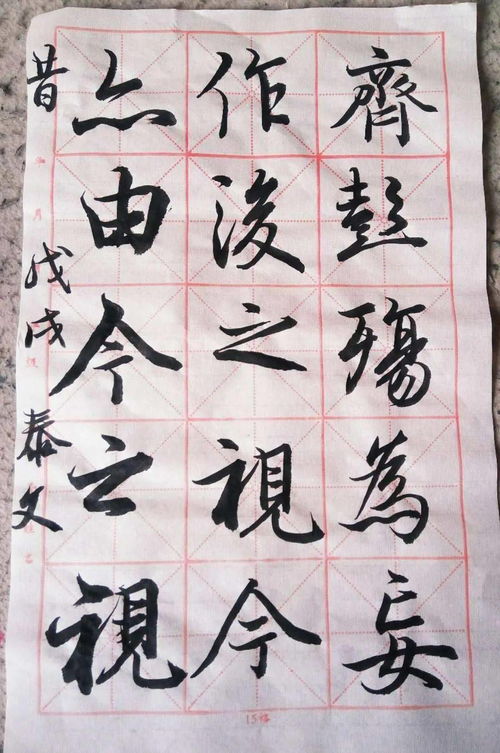 齊彭殤為妄
作後之視今
亦由今之視
昔 戊戌 泰文
月
15格